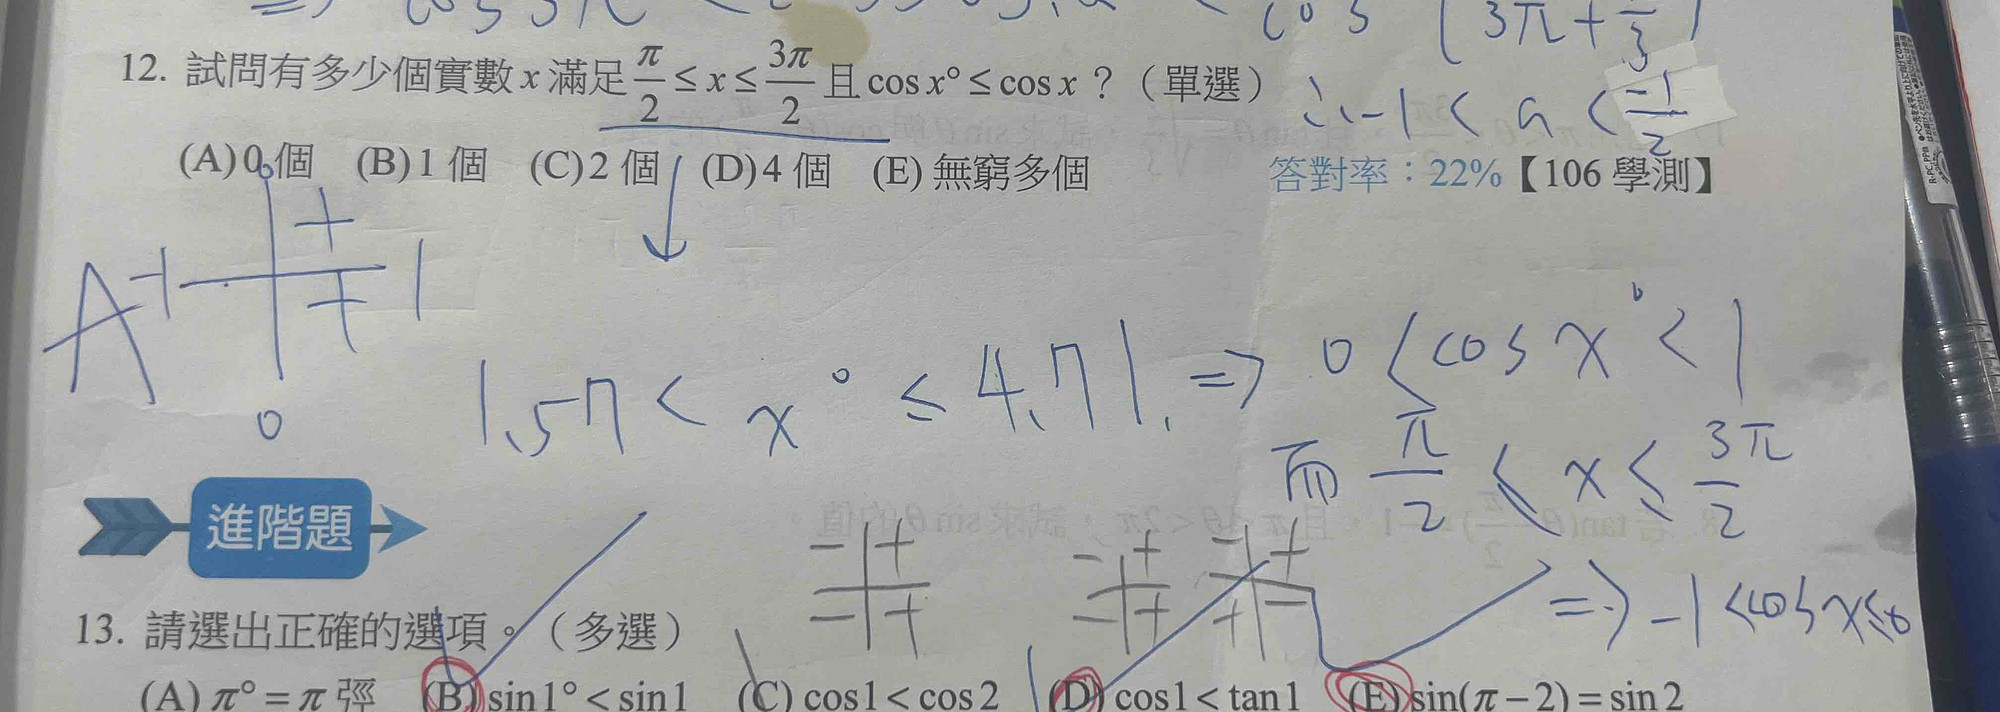 ⇒ cos3π < cos
cos(3π+π/3)
12. 試問有多少個實數 x 滿足 π/2 ≤ x ≤ 3π/2 且 cos x° ≤ cos x？（單選）
∴ -1 < a < -1/2
(A) 0 個 (B) 1 個 (C) 2 個 (D) 4 個 (E) 無窮多個
答對率：22%【106 學測】
0
+
A -1 + 1
0
1.57 < x° ≤ 4.71. ⇒ 0 < cos x° < 1
而 π/2 ≤ x ≤ 3π/2
⇒ -1 < cos x ≤ 0
進階題
- + - + - +
- + - + + -
13. 請選出正確的選項。（多選）
(A) π° = π 弳 (B) sin1° < sin1 (C) cos1 < cos2 (D) cos1 < tan1 (E) sin(π − 2) = sin2